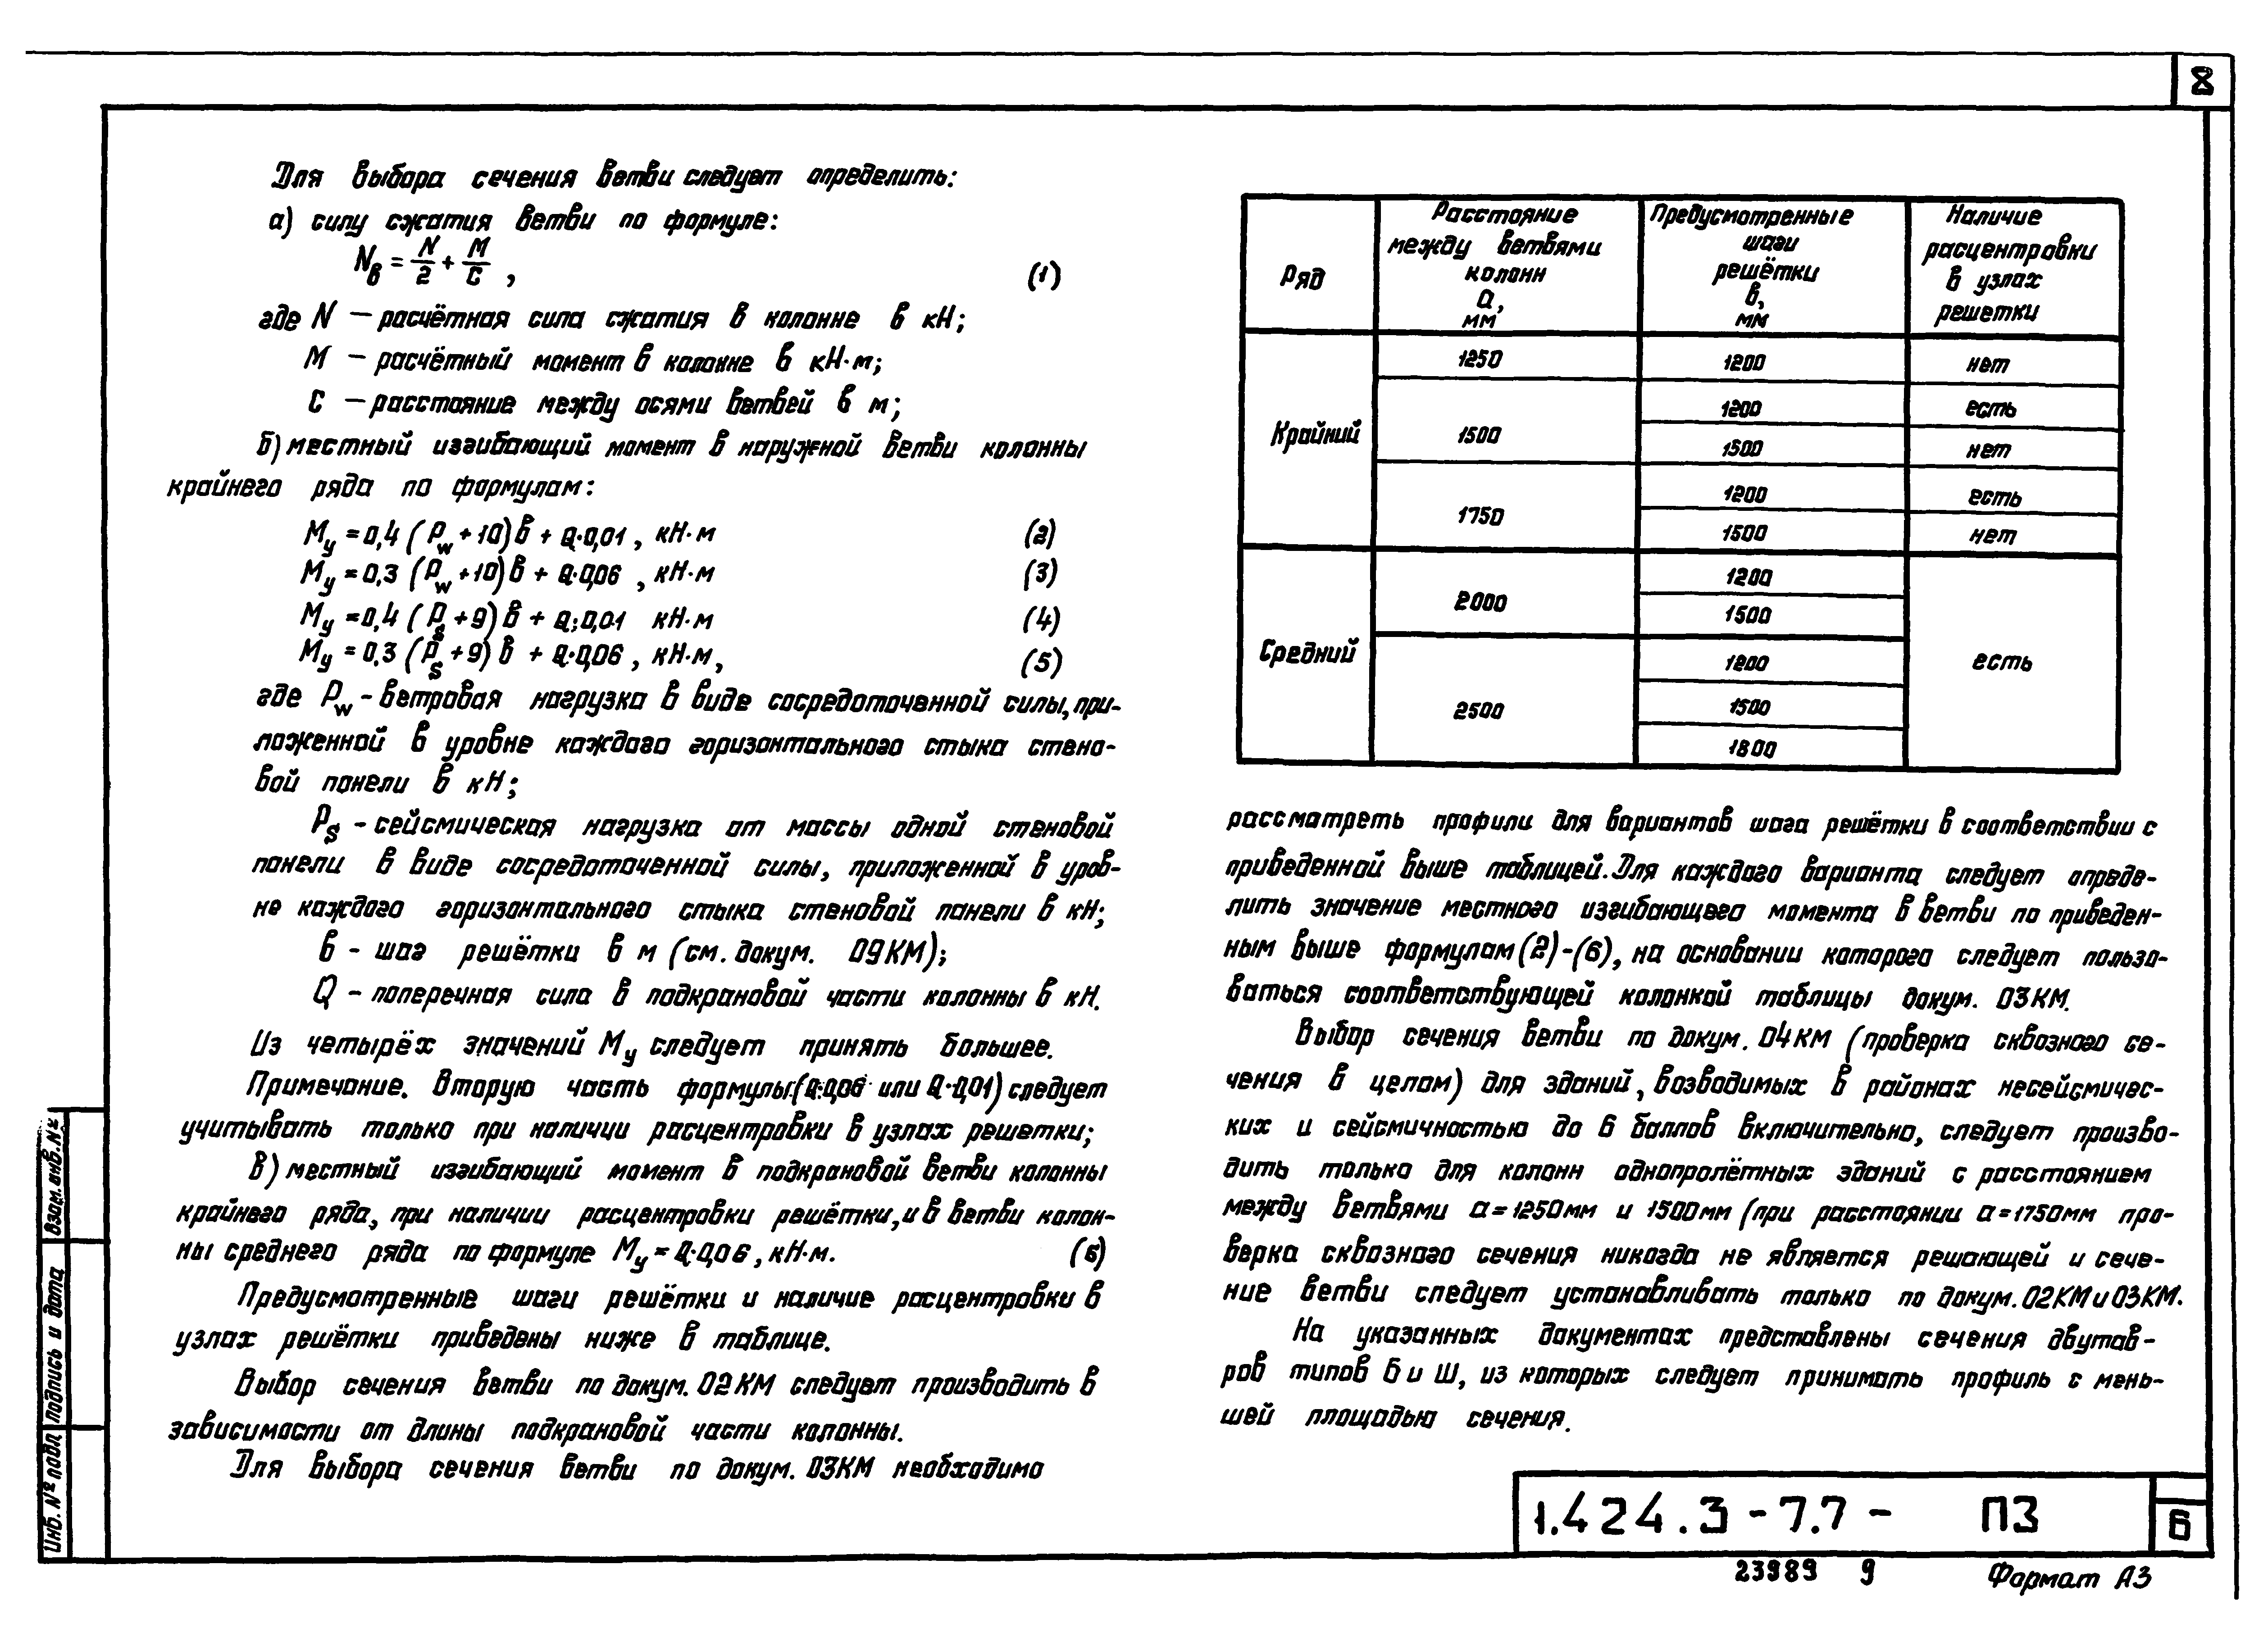 8
Для выбора сечения ветви следует определить:
а) силу сжатия ветви по формуле:
Nв = N/2 + M/C , (1)
где N — расчётная сила сжатия в колонне в кН;
M — расчётный момент в колонне в кН·м;
C — расстояние между осями ветвей в м;
б) местный изгибающий момент в наружной ветви колонны
крайнего ряда по формулам:
My = 0,4 (Pw + 10) в + Q·0,01 , кН·м (2)
My = 0,3 (Pw + 10) в + Q·0,06 , кН·м (3)
My = 0,4 (Ps + 9) в + Q·0,01 кН·м (4)
My = 0,3 (Ps + 9) в + Q·0,06 , кН·м, (5)
где Pw - ветровая нагрузка в виде сосредоточенной силы, при-
ложенной в уровне каждого горизонтального стыка стено-
вой панели в кН;
Ps - сейсмическая нагрузка от массы одной стеновой
панели в виде сосредоточенной силы, приложенной в уров-
не каждого горизонтального стыка стеновой панели в кН;
в - шаг решётки в м (см. докум. 09КМ);
Q - поперечная сила в подкрановой части колонны в кН.
Из четырёх значений My следует принять большее.
Примечание. Вторую часть формулы (Q·0,06 или Q·0,01) следует
учитывать только при наличии расцентровки в узлах решетки;
в) местный изгибающий момент в подкрановой ветви колонны
крайнего ряда, при наличии расцентровки решётки, и в ветви колон-
ны среднего ряда по формуле My = Q·0,06 , кН·м. (6)
Предусмотренные шаги решётки и наличие расцентровки в
узлах решётки приведены ниже в таблице.
Выбор сечения ветви по докум. 02КМ следует производить в
зависимости от длины подкрановой части колонны.
Для выбора сечения ветви по докум. 03КМ необходимо
Ряд
Расстояние
между ветвями
колонн
а,
мм
Предусмотренные
шаги
решётки
в,
мм
Наличие
расцентровки
в узлах
решетки
Крайний 1250 1200 нет
1500 1200 есть
1500 нет
1750 1200 есть
1500 нет
Средний 2000 1200 есть
1500
2500 1200
1500
1800
рассмотреть профили для вариантов шага решётки в соответствии с
приведенной выше таблицей. Для каждого варианта следует опреде-
лить значение местного изгибающего момента в ветви по приведен-
ным выше формулам (2)-(6), на основании которого следует пользо-
ваться соответствующей колонкой таблицы докум. 03КМ.
Выбор сечения ветви по докум. 04КМ (проверка сквозного се-
чения в целом) для зданий, возводимых в районах несейсмичес-
ких и сейсмичностью до 6 баллов включительно, следует произво-
дить только для колонн однопролётных зданий с расстоянием
между ветвями а=1250мм и 1500мм (при расстоянии а=1750мм про-
верка сквозного сечения никогда не является решающей и сече-
ние ветви следует устанавливать только по докум. 02КМ и 03КМ.
На указанных документах представлены сечения двутав-
ров типов Б и Ш, из которых следует принимать профиль с мень-
шей площадью сечения.
Взам. инв. №
Подпись и дата
Инв. № подл
1.424.3-7.7- ПЗ
6
23989 9
Формат А3